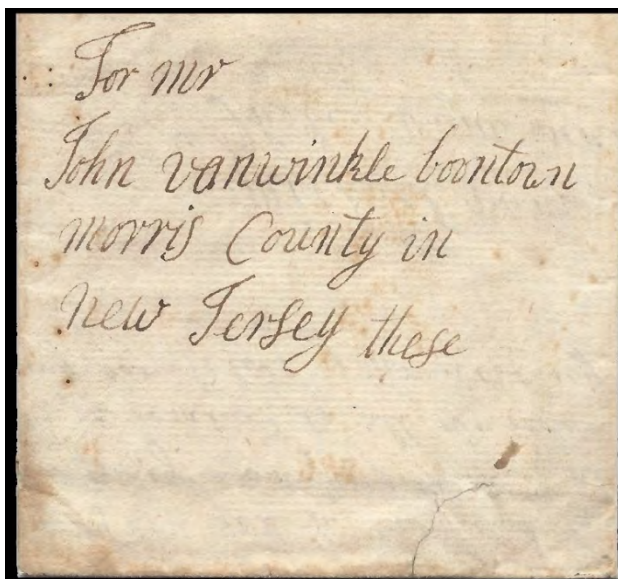 For mr
John vanwinkle boontown
morris County in
new Jersey these